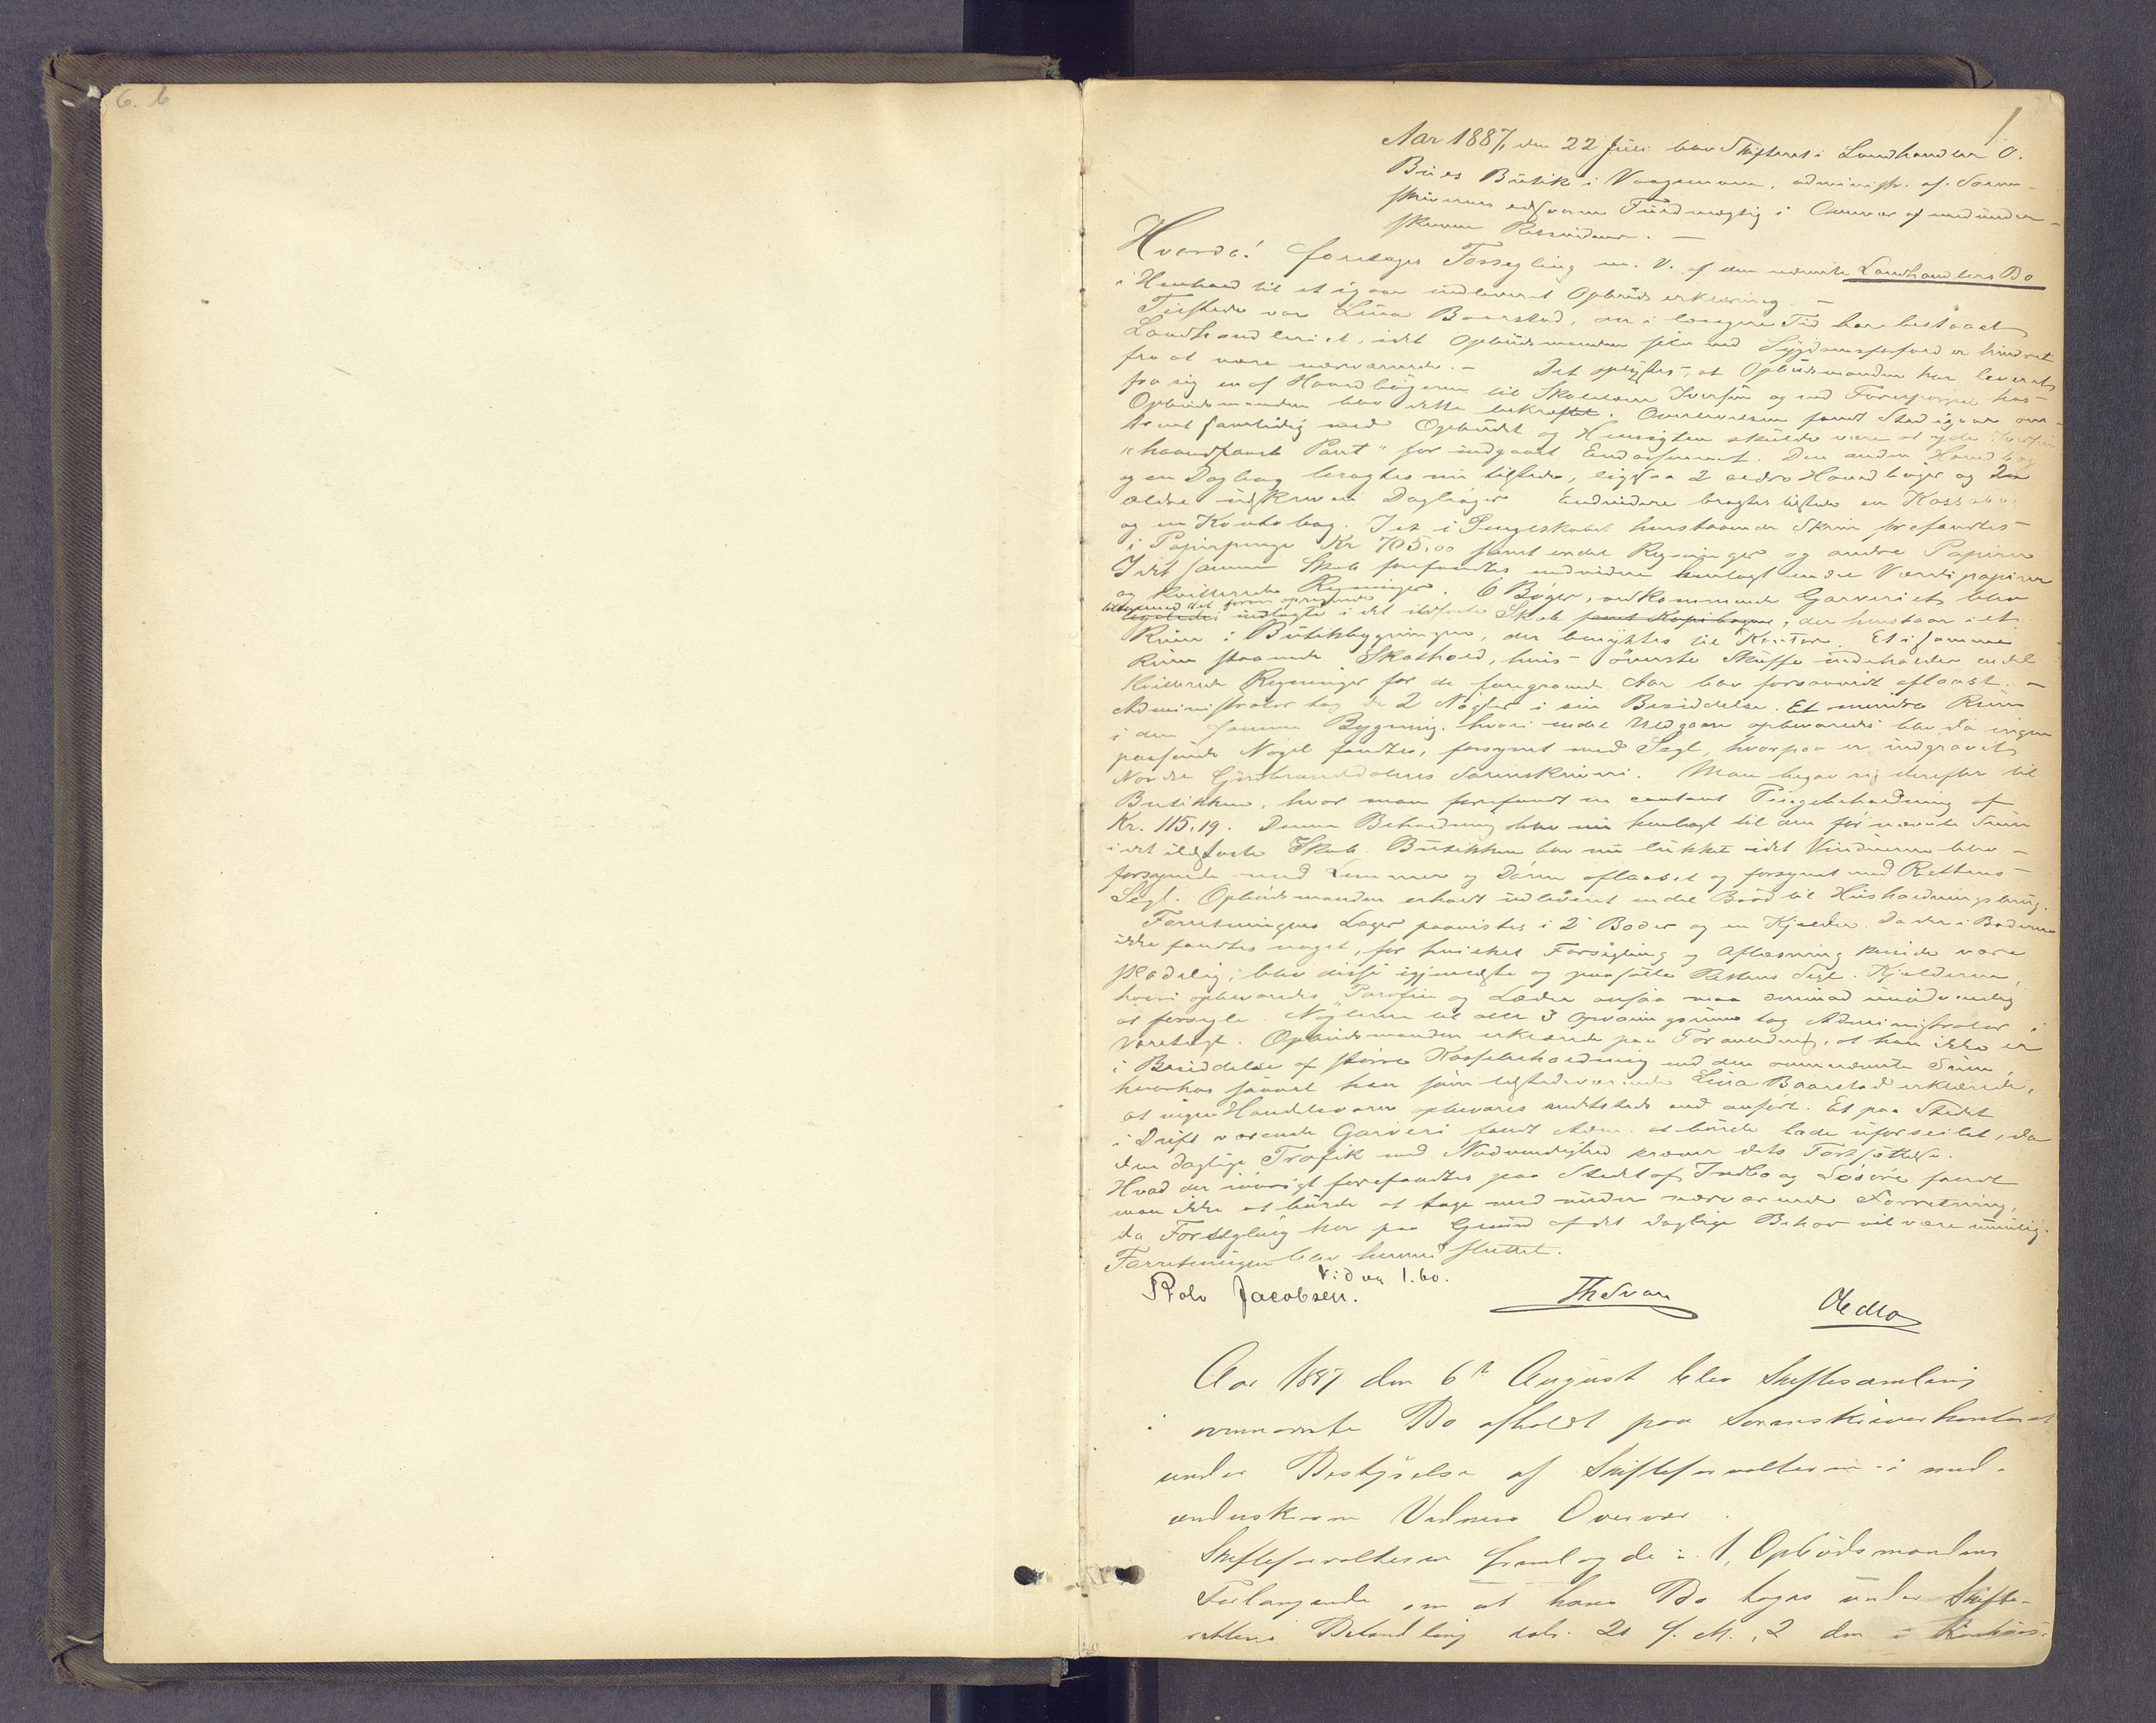 6. b
1
Aar 1887, den 22 Juli blev Skifteret i Landhandler O.
Bües Butik i Vaagemoen, administr. af Soren-
skriverens edsvorne Fuldmægtig i Overvær af medunder-
skrevne Retsvidner. —
Hvorda! foretages Forsegling m. V. af den nævnte Landhandlers Bo
i Henhold til et igaar indleveret Opbuds erklæring. —
Tilstede var Lina Baarstad, der i længere Tid har bestaaet
Landhandleriet, idet Opbudsmanden selv ved Sygdomsforfald er hindret
fra at være nærværende. — Det oplystes, at Opbudsmanden har leveret
fra sig en af Hovedbøgerne til Skolelærer Iversen og ved Forespørgsel hos
Opbudsmanden blev dette bekræftet. Overleveringen fandt Sted igaar om-
trent samtidig med Opbudet og Hensigten skulde være at yde Iversen
"haandfaaet Pant" for indgaaet Endossement. Den anden Hovedbog
og en Dagbog bragtes nu tilstede, ligesaa 2 ældre Hovedbøger og 2
ældre udskrevne Dagbøger. Endvidere bragtes tilstede en Kassabog
og en Kontobog. I et i Pengeskabet henstaaende Skrin forefandtes
i Papirpenge Kr 705,00 samt endel Regninger og andre Papirer
I det samme Skab forefandtes endvidere henlagt endel Værdipapirer
og kvitterede Regninger. 6 Bøger, vedkommende Garveriet, blev
tilligemed det foran opregnede
ligeledes indlagte i det ildfaste Skab samt Kopibogen, der henstaar i et
Rum i Butikbygningen, der benyttes til Kontor. Et i samme
Rum staaende Skathold, hvis øverste Skuffe indeholder endel
kvitterede Regninger for de foregaaende Aar blev forsaavidt aflaast. —
Administrator tog de 2 Nøgler i sin Besiddelse. Et mindre Rum
i den samme Bygning, hvori endel Uldgarn opbevaredes blev, da ingen
passende Nøgel fandtes, forsynet med Segl, hvorpaa er indgravet
Nordre Gudbrandsdalens Sorenskriveri. Man begav sig derefter til
Butikken, hvor man forefandt en contant Pengebeholdning af
Kr. 115,19. Denne Beholdning blev nu henlagt til den før nævnte Sum
i det ildfaste Skab. Butikken blev nu lukket idet Vinduerne blev
forsynede med Lemmer og Døren aflaaset og forsynet med Rettens
Segl. Opbudsmanden erholdt udleveret endel Brød til Husholdningsbrug.
Forretningens Lager paavistes i 2 Boder og en Kjelder. Da der i Boderne
ikke fandtes noget, for hvilket Forsegling og Aflæsning kunde være
skadelig, blev disse igjenlukte og paasatte Rettens Segl. Kjelderen,
hvori opbevaredes Parafin og Læder ansaa man unødvendig
at forsegle. Nøglerne til alle 3 Opvaringsrum tog Administrator i
Varetægt. Opbudsmanden erklærede paa Foranledning, at han ikke er
i Besiddelse af større Kassebeholdning end den ovennævnte Sum,
hvorhos saavel han som tilstedeværende Lina Baarstad erklærede,
at ingen Handelsvarer opbevares andetsteds end anført. Et paa Stedet
i Drift værende Garveri fandt Adm. at burde lade uforseilet, da
den daglige Trafik med Nødvendighed kræver dets Fortsættelse.
Hvad der iøvrigt forefandtes paa Stedet af Indbo og Løsøre fandt
man ikke at burde at tage med under nærværende Forretning,
da Forsegling her paa Grund af det daglige Behov vil være umulig.
Forretningen blev hermed sluttet.
Vidner 1.60.
Rolv Jacobsen.
Th Svan
Ole Mo
Aar 1887 den 6te August blev Skiftesamling
i ovennævnte Bo afholdt paa Sorenskriverkontoret
under Bestyrelse af Skifteforvalteren i med-
underskrevne Vidners Overvær.
Skifteforvalteren fremlagde: 1, Opbudsmandens
Forlangende om at hans Bo tages under Skifte-
rettens Behandling dat. 21 f. M., 2 den i